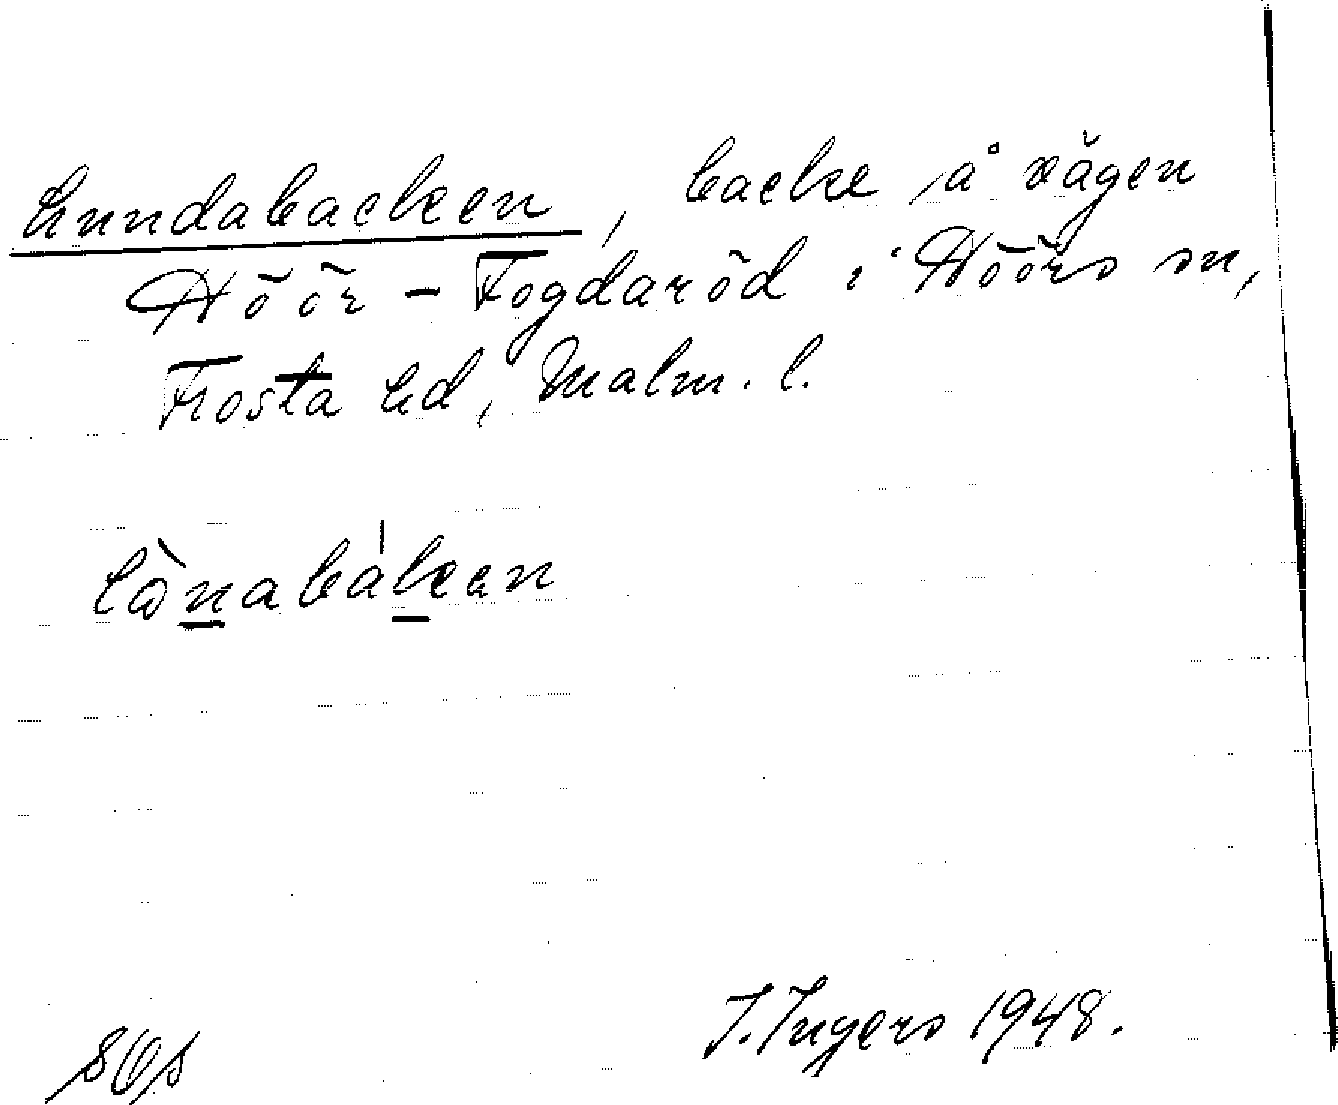 Lundabacken, backe å vägen
Höör – Fogdaröd i Höörs sn,
Frosta hd, Malm. l.
lɷ̀n̲abàˈk̲ən
I. Ingers 1948.